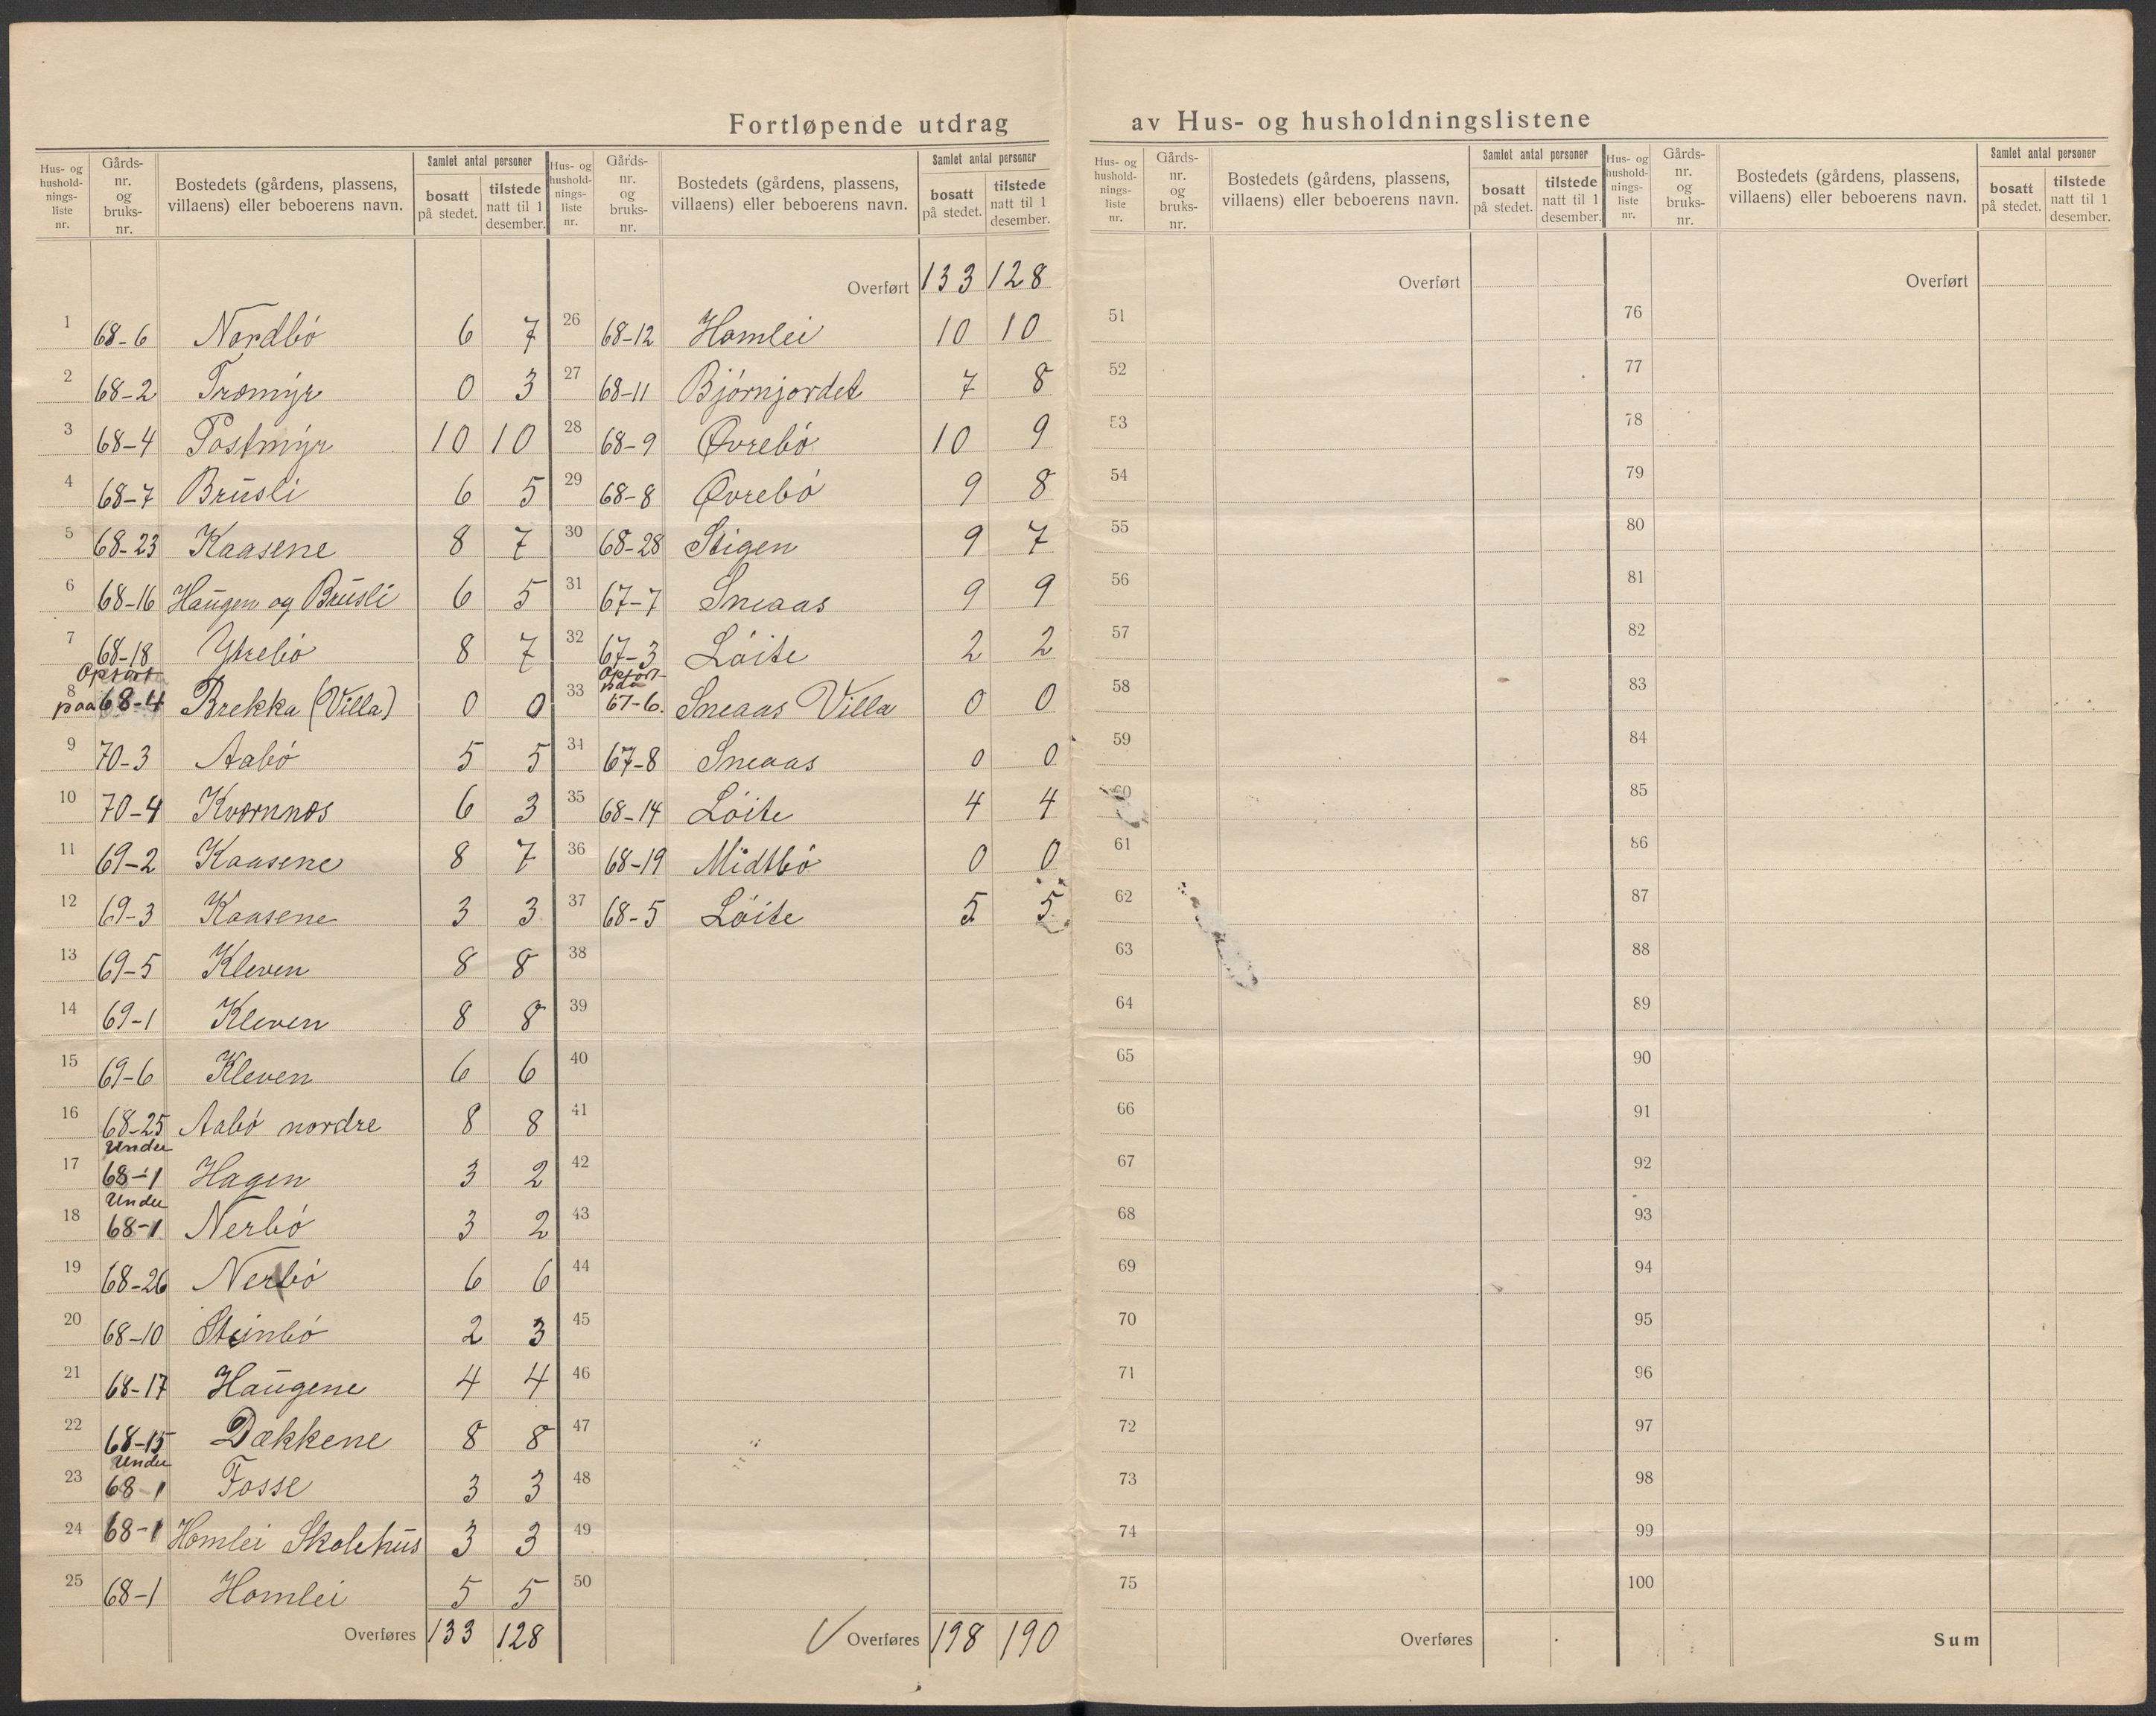 Fortløpende utdrag av Hus- og husholdningslistene
Hus- og hushold-nings-liste nr. | Gårds-nr. og bruks-nr. | Bostedets (gårdens, plassens, villaens) eller beboerens navn. | Samlet antal personer | bosatt på stedet. | tilstede natt til 1 desember.
1 68-6 Nordbó 6 7
2 68-2 Tromyr 0 3
3 68-4 Postmyr 10 10
4 68-7 Brusli 6 5
5 68-23 Kaasene 8 7
6 68-16 Haugen og Brusli 6 5
7 68-18 Ytrebó 8 7
Opfört
8 paa 68-4 Brekka (Villa) 0 0
9 70-3 Aabó 5 5
10 70-4 Kværnnes 6 3
11 69-2 Kaasene 8 7
12 69-3 Kaasene 3 3
13 69-5 Kleven 8 8
14 69-1 Kleven 8 8
15 69-6 Kleven 6 6
16 68-25 Aabó nordre 8 8
Under
17 68-1 Hagen 3 2
Under
18 68-1 Nerbó 3 2
19 68-26 Nerbó 6 6
20 68-10 Steinbó 2 3
21 68-17 Haugene 4 4
22 68-15 Dækkene 8 8
Under
23 68-1 Fosse 3 3
24 68-1 Homlei Skolehus 3 3
25 68-1 Homlei 5 5
Overføres 133 128
Hus- og hushold-nings-liste nr. | Gårds-nr. og bruks-nr. | Bostedets (gårdens, plassens, villaens) eller beboerens navn. | Samlet antal personer | bosatt på stedet. | tilstede natt til 1 desember.
Overført 133 128
26 68-12 Homlei 10 10
27 68-11 Bjórnjordet 7 8
28 68-9 Øvrebó 10 9
29 68-8 Øvrebó 9 8
30 68-28 Stigen 9 7
31 67-7 Sneaas 9 9
32 67-3 Lóite 2 2
Opfört
paa
33 67-6. Sneaas Villa 0 0
34 67-8 Sneaas 0 0
35 68-14 Lóite 4 4
36 68-19 Midtbó 0 0
37 68-5 Lóite 5 5
38
39
40
41
42
43
44
45
46
47
48
49
50
Overføres 198 190
Hus- og hushold-nings-liste nr. | Gårds-nr. og bruks-nr. | Bostedets (gårdens, plassens, villaens) eller beboerens navn. | Samlet antal personer | bosatt på stedet. | tilstede natt til 1 desember.
Overført
51
52
53
54
55
56
57
58
59
60
61
62
63
64
65
66
67
68
69
70
71
72
73
74
75
Overføres
Hus- og hushold-nings-liste nr. | Gårds-nr. og bruks-nr. | Bostedets (gårdens, plassens, villaens) eller beboerens navn. | Samlet antal personer | bosatt på stedet. | tilstede natt til 1 desember.
Overført
76
77
78
79
80
81
82
83
84
85
86
87
88
89
90
91
92
93
94
95
96
97
98
99
100
Sum